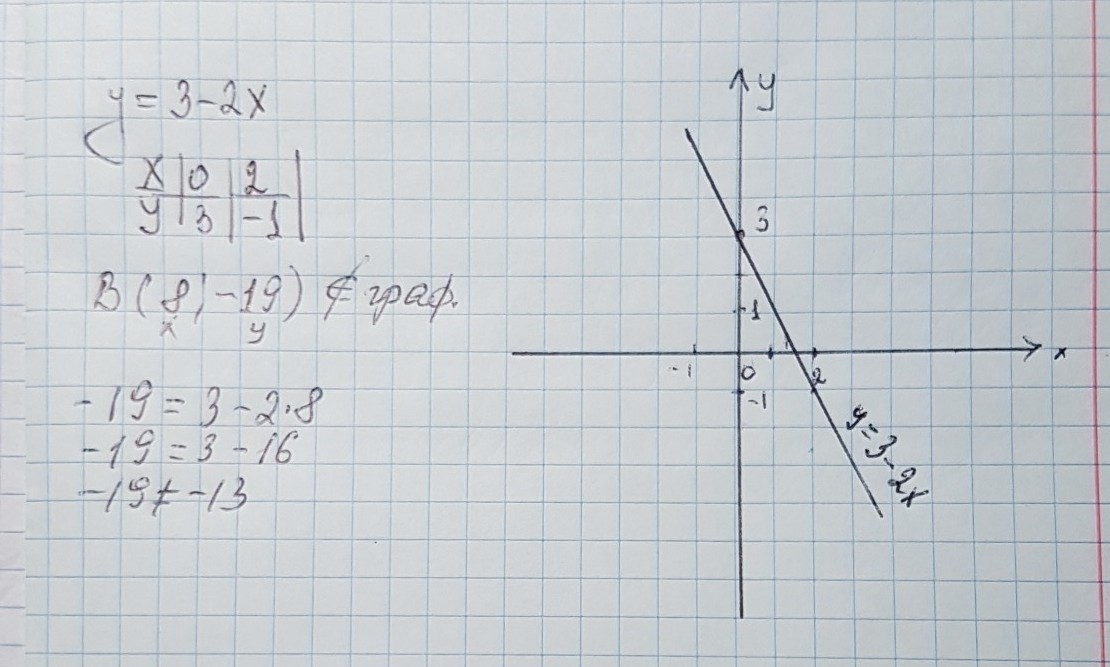 y = 3 - 2x
x | 0 | 2 |
y | 3 | -1 |
B ( 8 ; -19 ) ∉ граф.
x y
-19 = 3 - 2·8
-19 = 3 - 16
-19 ≠ -13
y
3
1
-1 0 2 x
-1
y = 3 - 2x